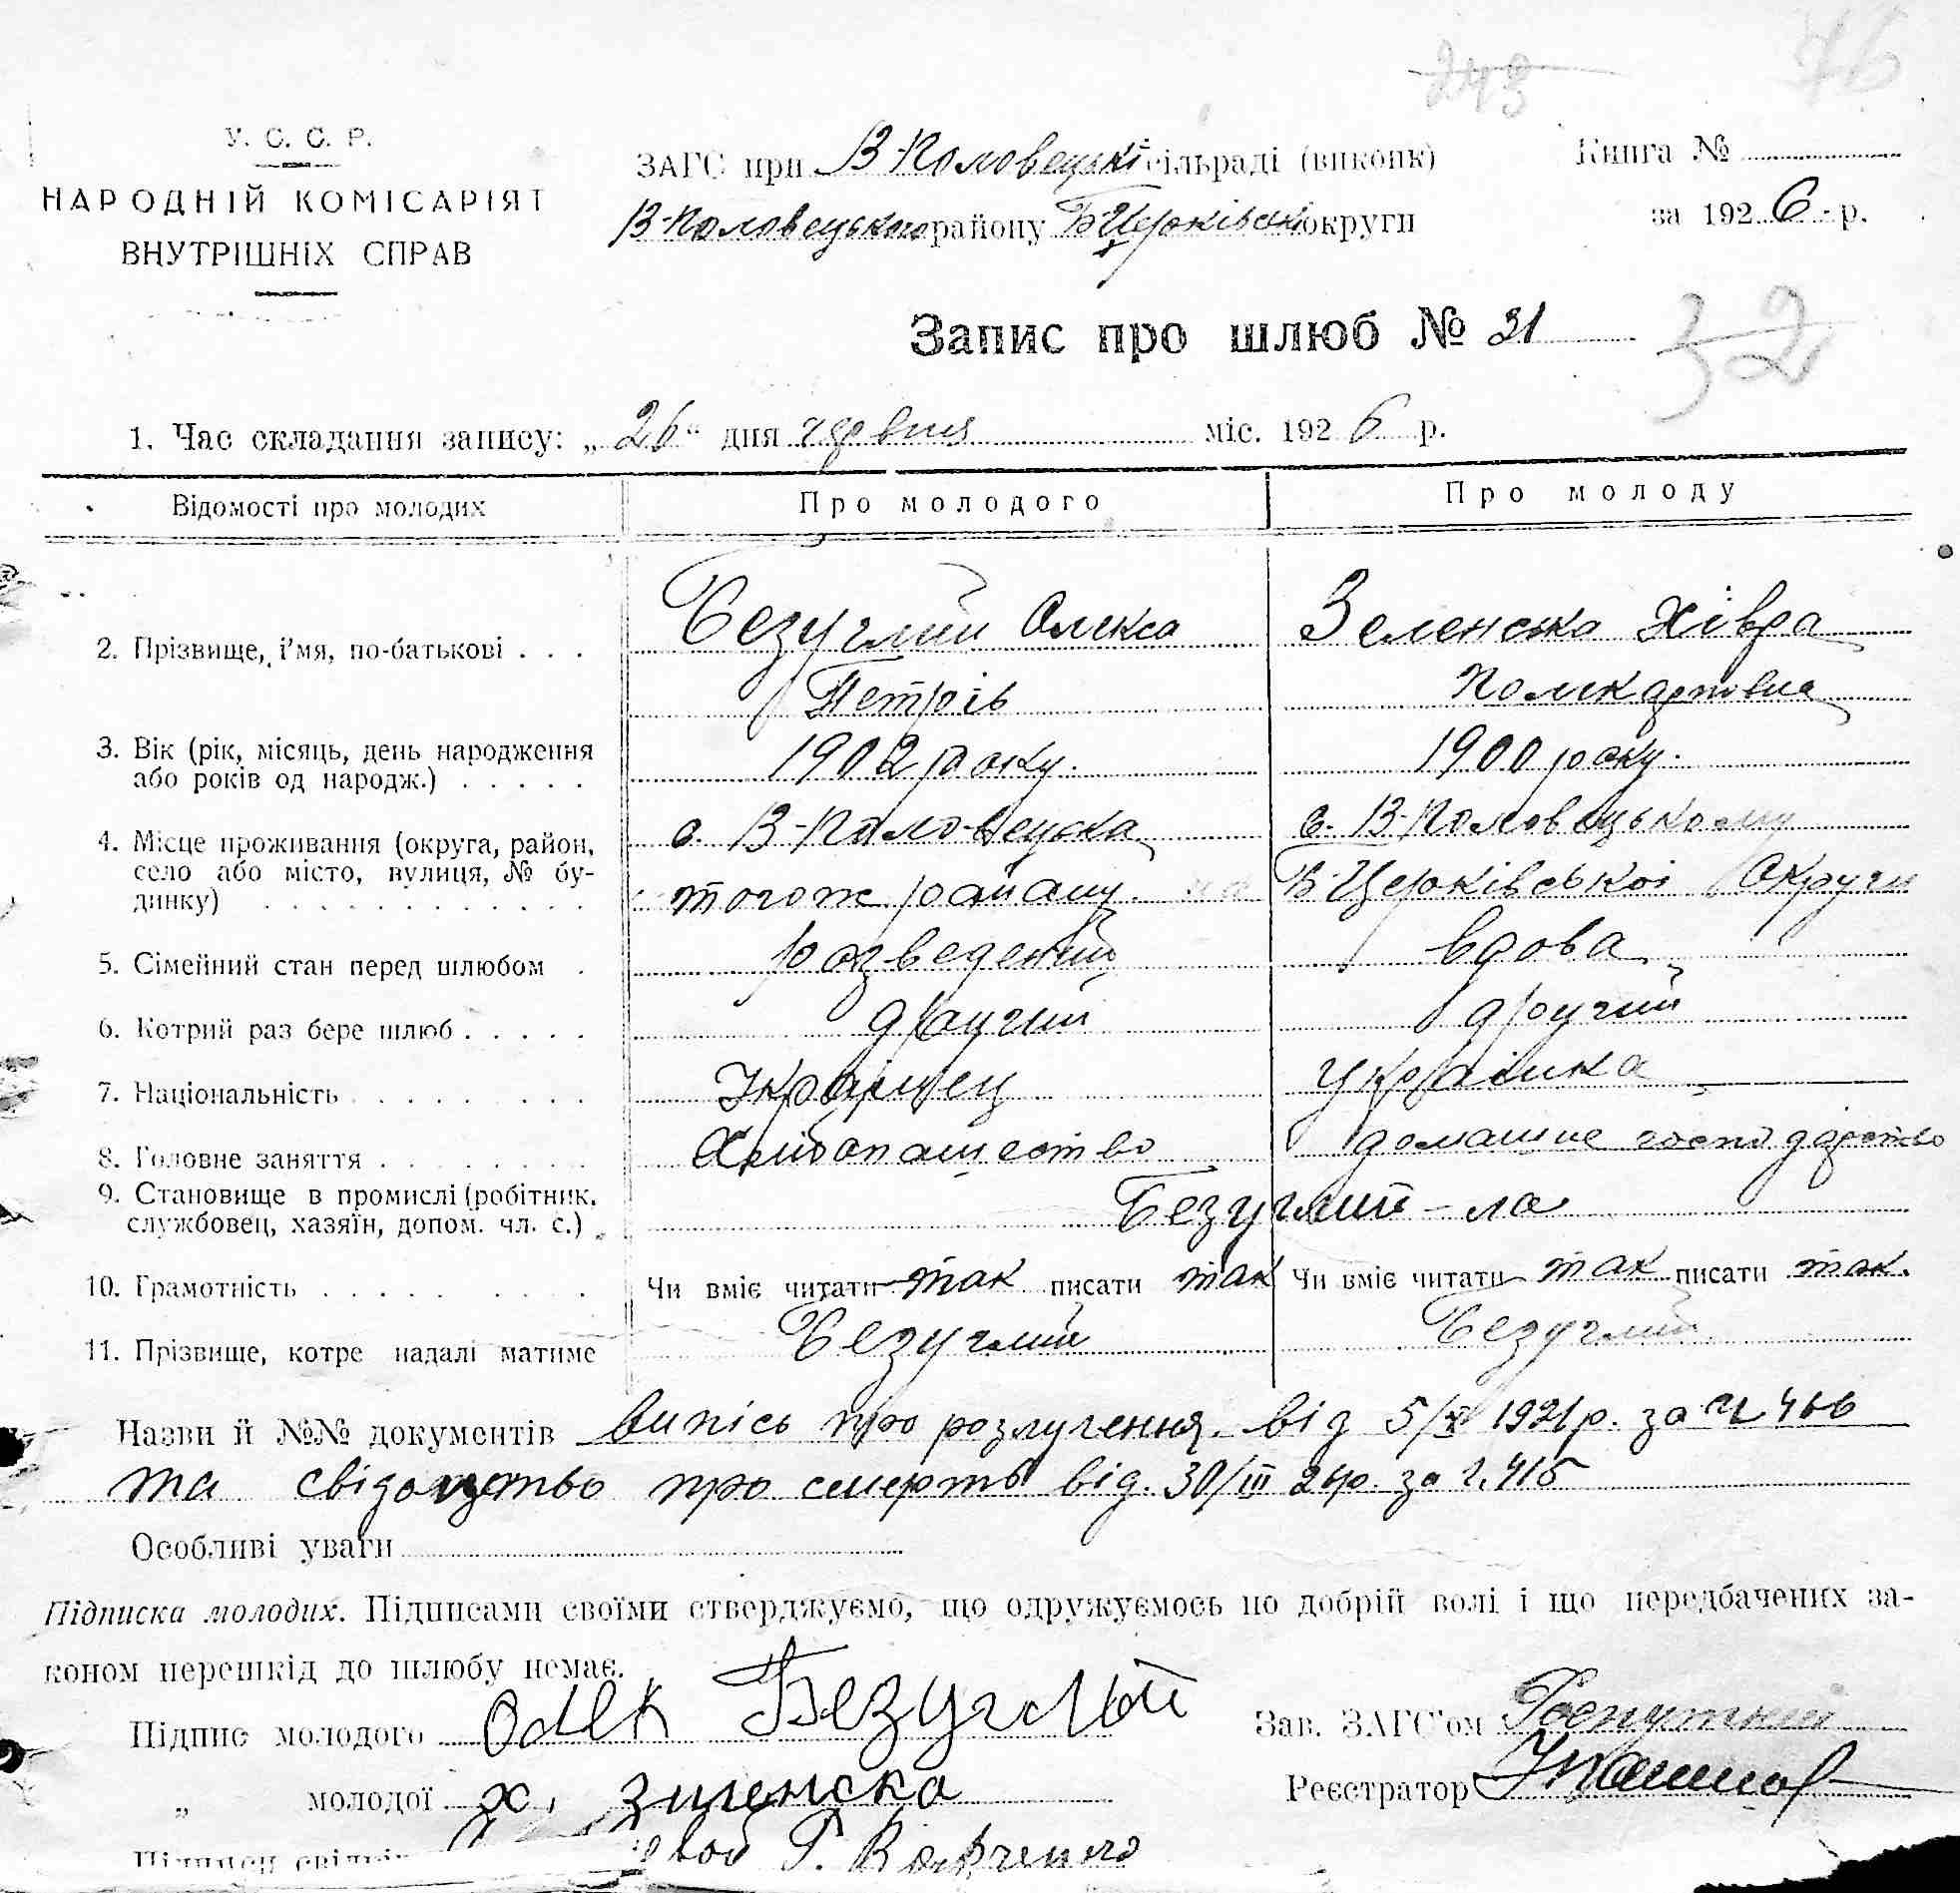 243 76
У. С. С. Р.
НАРОДНІЙ КОМІСАРІЯТ
ВНУТРІШНІХ СПРАВ
ЗАГС при В-Половецькі сільраді (виконк) Книга №
В-Половецького району Б-Церківські округи за 1926 р.
Запис про шлюб № 31 32
1. Час складання запису: „26“ дня червня міс. 1926 р.
Відомості про молодих Про молодого Про молоду
2. Прізвище, і'мя, по-батькові . . . Безуглий Олекса Зеленська Хівра
Петрів Поликарповна
3. Вік (рік, місяць, день народження 1902 року. 1900 року.
або років од народж.) . . . . .
4. Місце проживання (округа, район, с. В-Половецька с. В-Половецькому
село або місто, вулиця, № бу- тогож району Б-Церківської Округи
динку) . . . . . . . . . . . .
5. Сімейний стан перед шлюбом . розведений вдова
6. Котрий раз бере шлюб . . . . . другий другий
7. Національність . . . . . . . . . Українец Українка
8. Головне заняття . . . . . . . . Хлібопашество домашне господарство
9. Становище в промислі (робітник, Безуглий - ла
службовец, хазяїн, допом. чл. с.)
10. Грамотність . . . . . . . . Чи вміє читати так писати так Чи вміє читати так писати так.
11. Прізвище, котре надалі матиме Безуглий Безуглий
Назви й №№ документів випісь про розлучення від 5/ 1921р. за ч 466
та свідоцтво про смерть від. 30/ІІІ р. за ч. 415
Особливі уваги
Підписка молодих. Підписами своїми стверджуємо, що одружуємось по добрій волі і що передбачених за-
коном перешкід до шлюбу немає.
Підпис молодого Олек Безуглый Зав. ЗАГС'ом
„ молодої Х, Зиленска Реєстратор
Підписи Г.